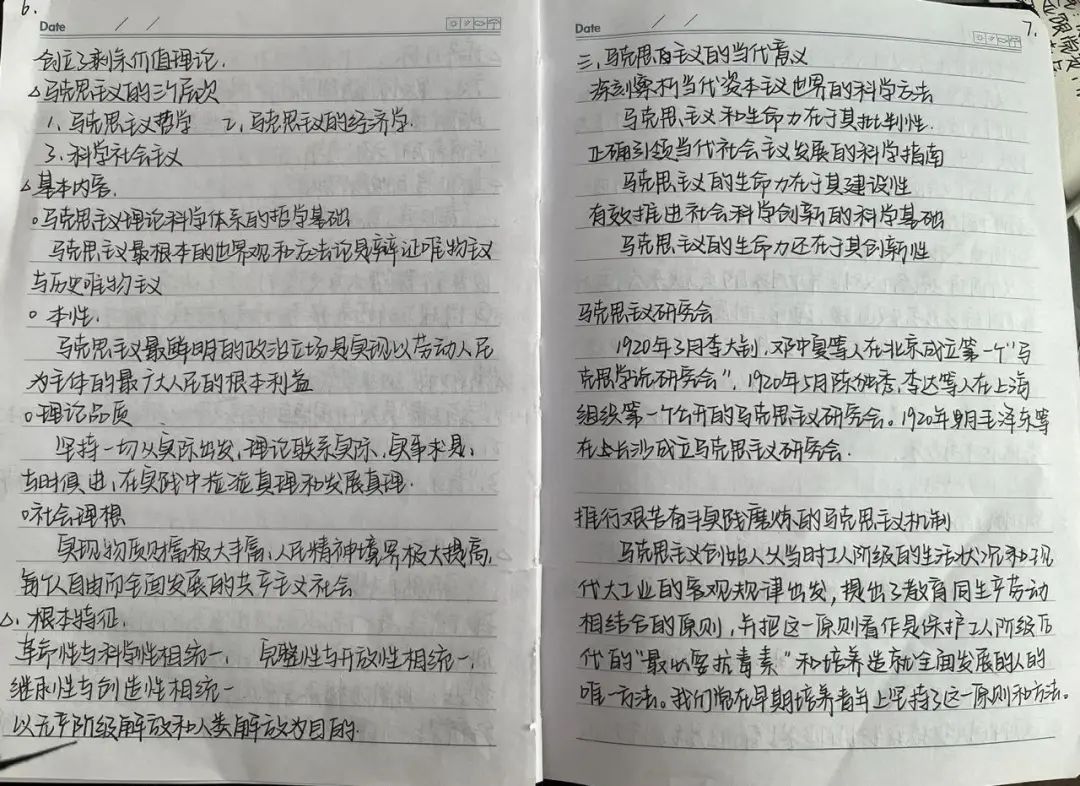 6.
Date / /
创立了剩余价值理论.
△马克思主义的三个层次
1、马克思主义哲学 2、马克思主义的经济学.
3、科学社会主义
△基本内容.
○马克思主义理论科学体系的哲学基础
马克思主义最根本的世界观和方法论是辩证唯物主义
与历史唯物主义
○ 本性.
马克思主义最鲜明的政治立场是实现以劳动人民
为主体的最广大人民的根本利益
○理论品质
坚持一切从实际出发,理论联系实际,实事求是,
与时俱进,在实践中检验真理和发展真理.
○社会理想
实现物质财富极大丰富,人民精神境界极大提高,
每个人自由而全面发展的共产主义社会
△. 根本特征.
革命性与科学性相统一. 完整性与开放性相统一.
继承性与创造性相统一
以无产阶级解放和人类解放为目的.
7.
Date / /
三、马克思主义的当代意义
深刻解析当代资本主义世界的科学方法
马克思主义和生命力在于其批判性.
正确引领当代社会主义发展的科学指南
马克思主义的生命力在于其建设性
有效推进社会科学创新的科学基础
马克思主义的生命力还在于其创新性
马克思主义研究会
1920年3月李大钊,邓中夏等人在北京成立第一个"马
克思学说研究会",1920年5月陈独秀,李达等人在上海
组织第一个公开的马克思主义研究会。1920年 月毛泽东等
在长沙成立马克思主义研究会.
推行艰苦奋斗实践磨炼的马克思主义机制
马克思主义创始人从当时工人阶级的生活状况和现
代大工业的客观规律出发,提出了教育同生产劳动
相结合的原则,并把这一原则看作是保护工人阶级后
代的"最必要抗毒素"和培养造就全面发展的人的
唯一方法。我们党在早期培养青年上坚持了这一原则和方法。